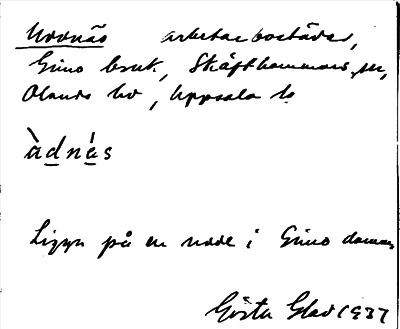 Uddnäs arbetarbostäder,
Gimo bruk, Skäfthammars sn,
Olands hd, Uppsala l.
àdnás
Ligger på en udde i Gimo damm
Gösta Glad 1937